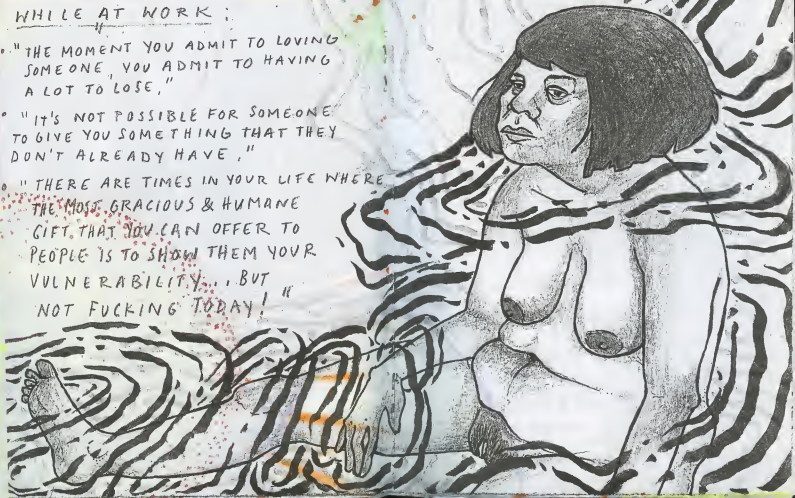 WHILE AT WORK:
• "THE MOMENT YOU ADMIT TO LOVING
SOMEONE, YOU ADMIT TO HAVING
A LOT TO LOSE."
• "IT'S NOT POSSIBLE FOR SOMEONE
TO GIVE YOU SOMETHING THAT THEY
DON'T ALREADY HAVE."
• "THERE ARE TIMES IN YOUR LIFE WHERE
THE MOST GRACIOUS & HUMANE
GIFT THAT YOU CAN OFFER TO
PEOPLE IS TO SHOW THEM YOUR
VULNERABILITY... BUT
NOT FUCKING TODAY!"